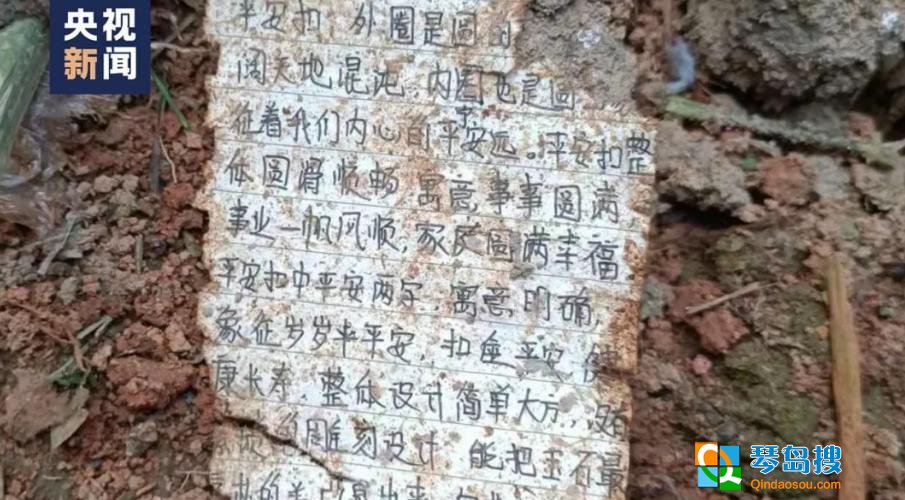 央视
新闻
平安扣,外圈是圆
阔天地混沌,内圈也是圆
征着我们内心的平安宁远。平安扣整
体圆滑顺畅寓意事事圆满
事业一帆风顺,家庭圆满幸福。
平安扣中平安两字,寓意明确,
象征岁岁平平安,扣住平安,健
康长寿,整体设计简单大方,
雕刻设计能把玉石最
琴岛搜
Qindaosou.com